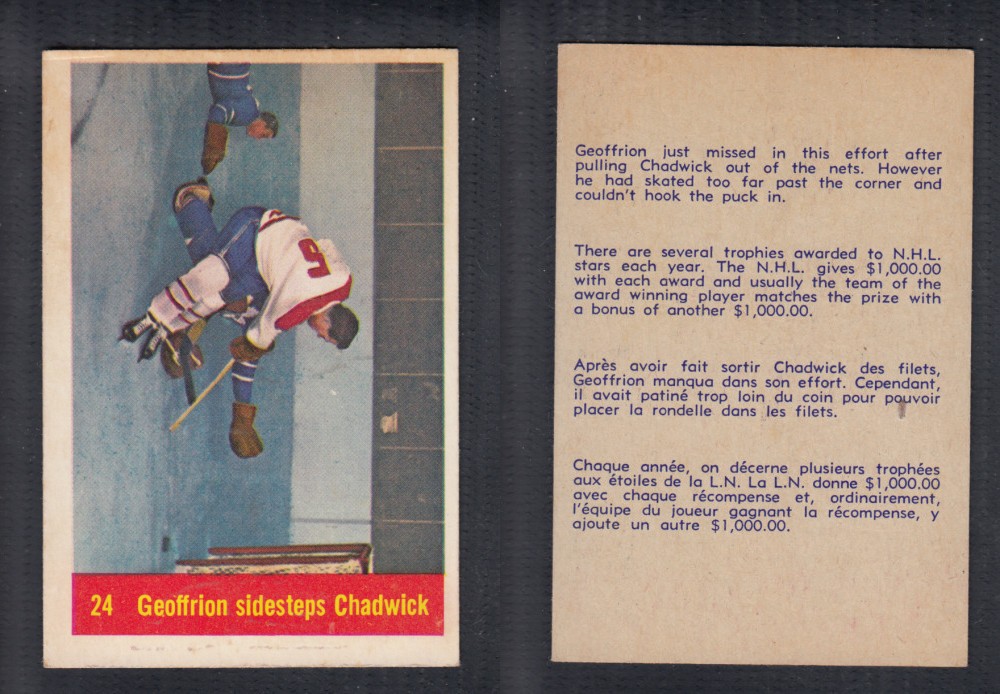 5
24 Geoffrion sidesteps Chadwick
Geoffrion just missed in this effort after
pulling Chadwick out of the nets. However
he had skated too far past the corner and
couldn't hook the puck in.
There are several trophies awarded to N.H.L.
stars each year. The N.H.L. gives $1,000.00
with each award and usually the team of the
award winning player matches the prize with
a bonus of another $1,000.00.
Après avoir fait sortir Chadwick des filets,
Geoffrion manqua dans son effort. Cependant,
il avait patiné trop loin du coin pour pouvoir
placer la rondelle dans les filets.
Chaque année, on décerne plusieurs trophées
aux étoiles de la L.N. La L.N. donne $1,000.00
avec chaque récompense et, ordinairement,
l'équipe du joueur gagnant la récompense, y
ajoute un autre $1,000.00.